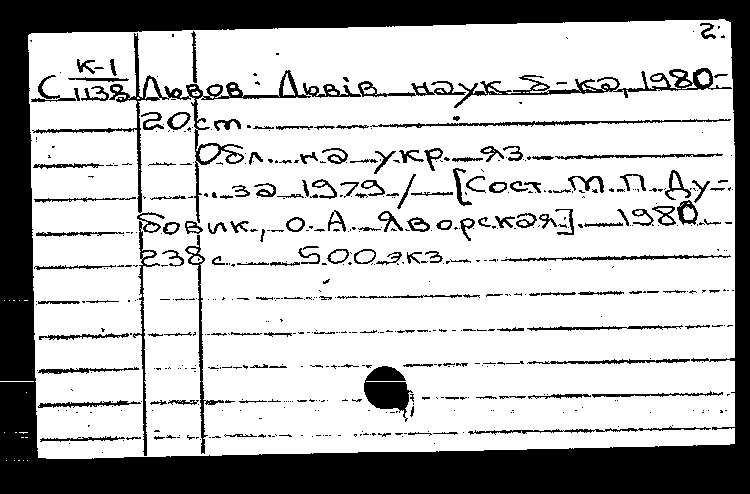 2.
К-1
С 1138 Львов: Львів наук б-ка, 1980-
20 cm.
Обл. на укр. яз.
.. за 1979 / [Сост. М. П. Ду-
бовик, О. А. Яворская]. 1980.
238 с. 500 экз.